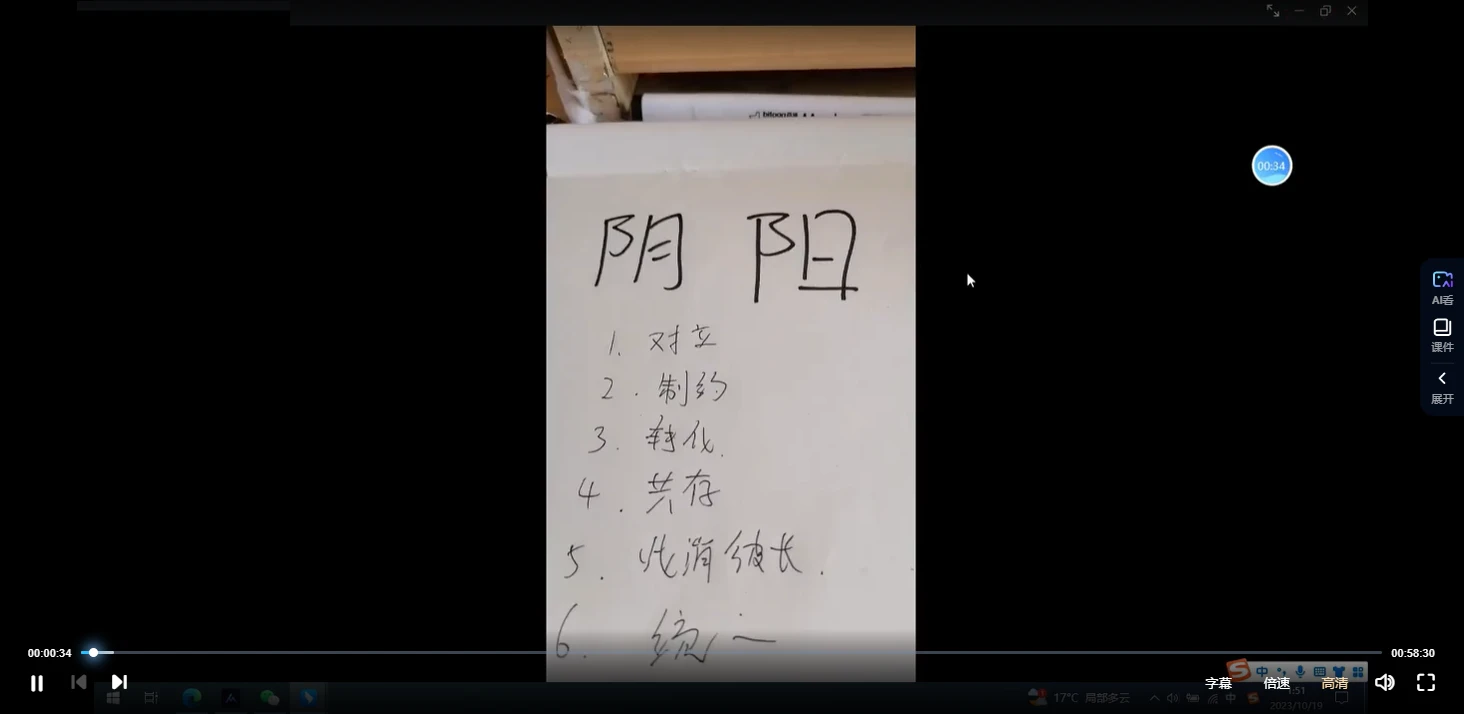 00:34
阴 阳
1. 对立
2. 制约
3. 转化.
4. 共存
5. 此消彼长.
6. 统一
AI看
课件
展开
00:00:34
00:58:30
字幕
倍速
高清
中
17°C 局部多云
中
:51
2023/10/19